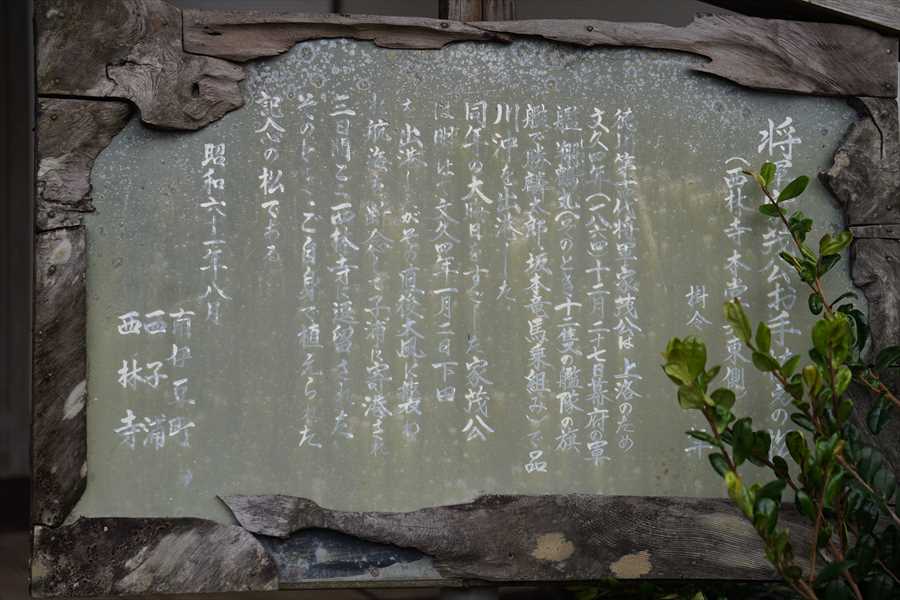 将 家茂公お手 の松
(西林寺本堂東側)
樹令
徳川第十四代将軍家茂公は上洛のため
文久四年(一八六四)十二月二十七日幕府の軍
艦翔鶴丸(このとき十二隻の艦隊の旗
艦で勝麟太郎坂本竜馬乗組み)で品
川沖を出港した
同年の大晦日をすごした家茂公
は明けて文久四年一月二日下田
を出港したがその直後大風に襲われ
航海を断念して子浦に寄港され
三日間ここ西林寺に逗留された
そのとしご自身で植えられた
記念の松である
昭和六十一年八月
南伊豆町
西子浦
西林寺